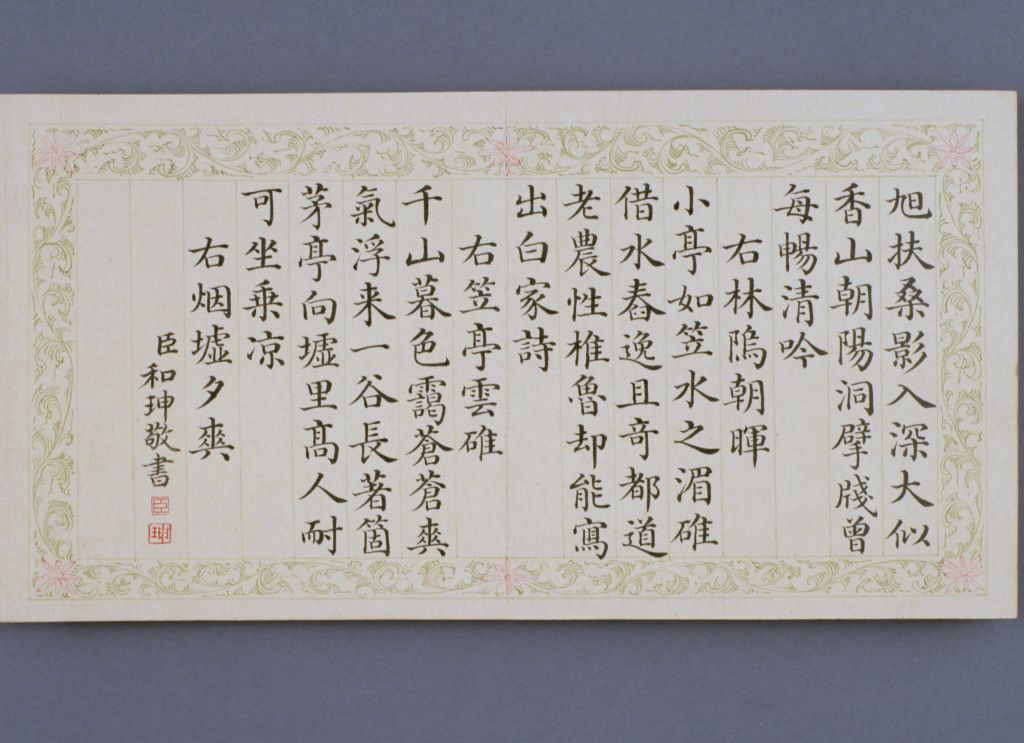 旭扶桑影入深大似
香山朝陽洞擘牋曽
每暢清吟
右林隖朝暉
小亭如笠水之湄碓
借水舂逸且竒都道
老農性椎魯却能寫
出白家詩
右笠亭雲碓
千山暮色靄蒼蒼爽
氣浮来一谷長著箇
茅亭向墟里髙人耐
可坐乗凉
右烟墟夕爽
臣和珅敬書
臣
珅